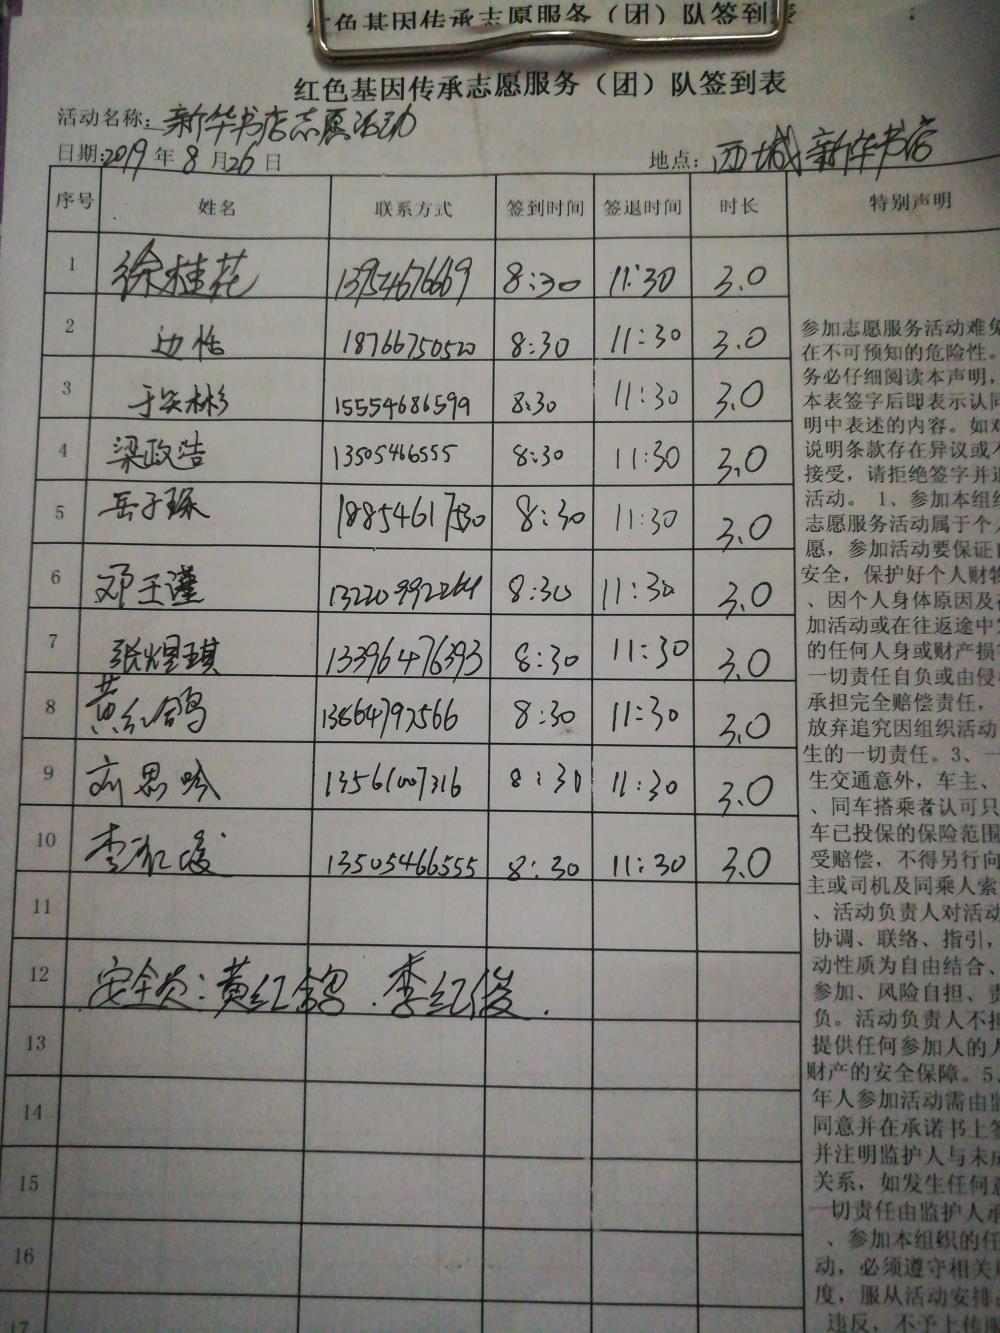 红色基因传承志愿服务（团）队签到表
红色基因传承志愿服务（团）队签到表
活动名称：新华书店志愿活动
日期:2019年8月26日 地点：西城新华书店
序号 姓名 联系方式 签到时间 签退时间 时长 特别声明
1 徐桂花 13954676669 8:30 11:30 3.0
2 边恬 18766750520 8:30 11:30 3.0
3 15554686599 8:30 11:30 3.0
4 梁政浩 13505466555 8:30 11:30 3.0
5 岳子琢 18854617530 8:30 11:30 3.0
6 邓玉瑾 13220992264 8:30 11:30 3.0
7 张煜琪 13396476393 8:30 11:30 3.0
8 黄红鸽 13864792566 8:30 11:30 3.0
9 刘思吟 13561007316 8:30 11:30 3.0
10 李红俊 13505466555 8:30 11:30 3.0
11
12 安全员：黄红鸽．李红俊．
13
14
15
16
17
参加志愿服务活动难免
在不可预知的危险性。
务必仔细阅读本声明，
本表签字后即表示认同
明中表述的内容。如对
说明条款存在异议或不
接受，请拒绝签字并退
活动。 1、参加本组织
志愿服务活动属于个人
愿，参加活动要保证自
安全，保护好个人财物
、因个人身体原因及在
加活动或在往返途中发
的任何人身或财产损害
一切责任自负或由侵权
承担完全赔偿责任，
放弃追究因组织活动
生的一切责任。3、一
生交通意外，车主、
、同车搭乘者认可只
车已投保的保险范围
受赔偿，不得另行向
主或司机及同乘人索
、活动负责人对活动
协调、联络、指引，
动性质为自由结合、
参加、风险自担、责
负。活动负责人不担
提供任何参加人的人
财产的安全保障。5、
年人参加活动需由监
同意并在承诺书上签
并注明监护人与未成
关系，如发生任何意
一切责任由监护人承
、参加本组织的任
动，必须遵守相关
度，服从活动安排
违反，不予上传服